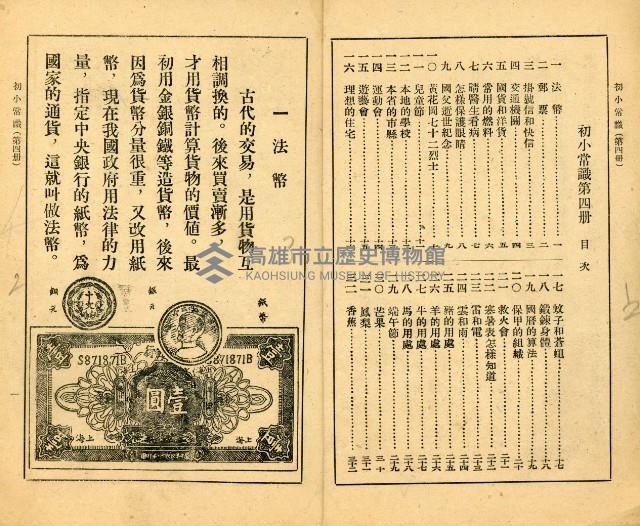 初小常識(第四冊)
初小常識第四冊 目次
一 法幣……一
二 郵票……二
三 掛號信和快信……三
四 交通機關……四
五 國貨和洋貨……五
六 常用的燃料……六
七 請醫生看病……七
八 怎樣保護眼睛……八
九 國父逝世紀念……九
一〇 黃花岡七十二烈士
一一 兒童節
一二 本地的學校
一三 本省的市縣
一四 運動會
一五 遊藝會
一六 理想的住宅
一七 蚊子和蒼蠅……一七
一八 鍛鍊身體……一八
一九 國曆的算法……一九
二〇 保甲的組織……二十
二一 救火會……二十一
二二 寒暑表怎樣知道……二十二
二三 雷和電……二十三
二四 雲和雨……二十四
二五 豬的用處……二十五
二六 羊的用處……二十六
二七 牛的用處……二十七
二八 馬的用處……二十八
二九 端午節……二十九
三〇 芒果……三十
三一 鳳梨……三十一
三二 香蕉……三十二
一 法幣
古代的交易,是用貨物互
相調換的。後來買賣漸多,
才用貨幣計算貨物的價值。最
初用金銀銅鐵等造貨幣,後來
因為貨幣分量很重,又改用紙
幣,現在我國政府用法律的力
量,指定中央銀行的紙幣,為
國家的通貨,這就叫做法幣。
紙幣
銀元
銅元
十文
S871871B
S871871B
壹圓
上海
上海
初小常識(第四冊)
一
高雄市立歷史博物館
KAOHSIUNG MUSEUM OF HISTORY